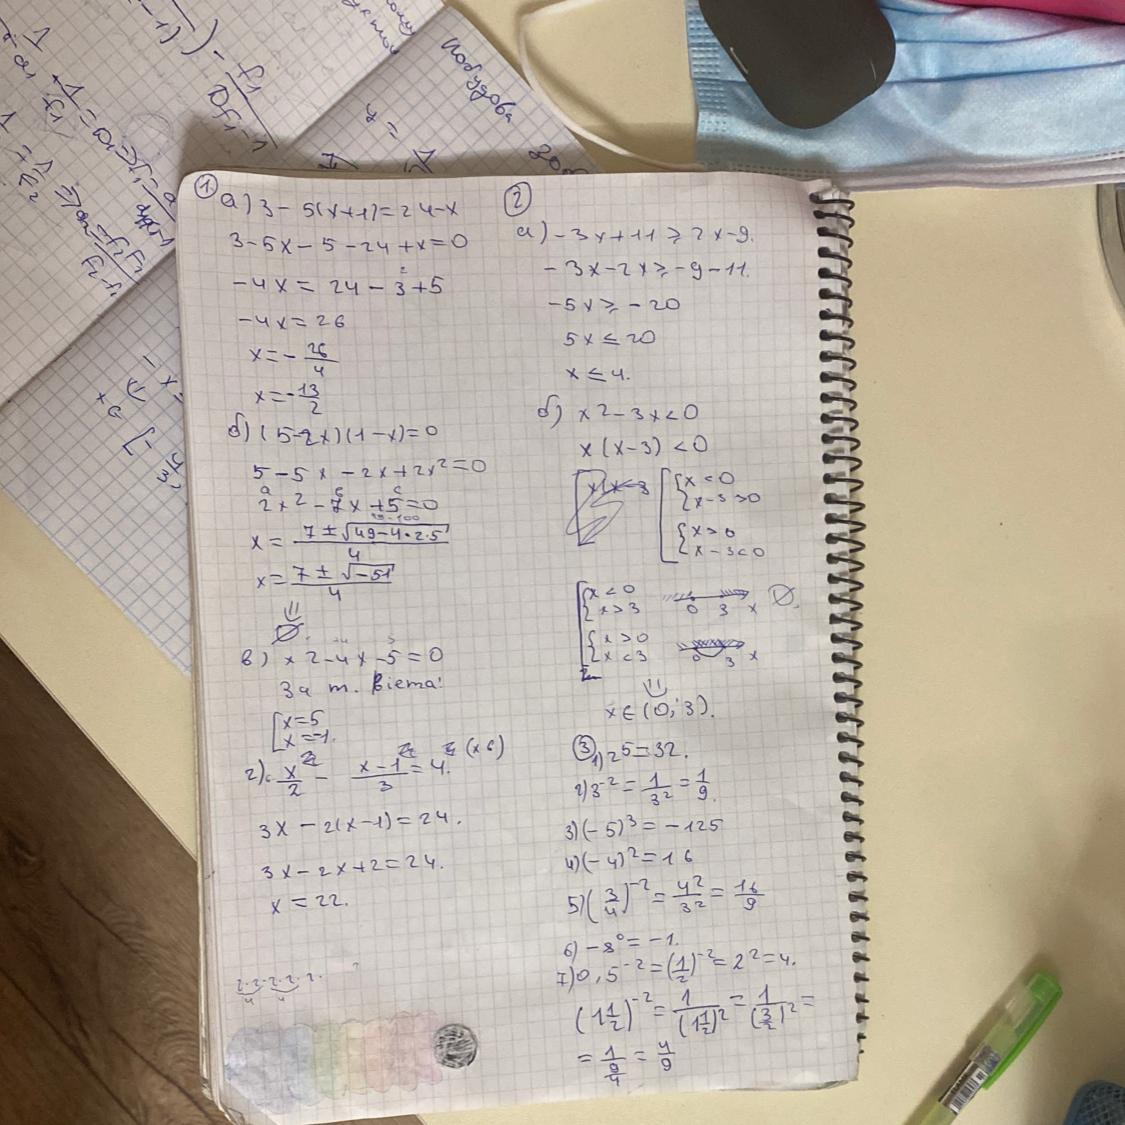 ①
а) 3 - 5(x+1) = 24-x
3-5x-5-24+x=0
-4x = 24-3+5
-4x=26
x=-26/4
x=-13/2
б) (5-2x)(1-x)=0
5-5x-2x+2x²=0
a в c
2x²-7x+5=0
x = (7±√(49-4•2•5))/4
x = (7±√(-51))/4
⇓
∅
в) x²-4x-5=0
За т. Вієта:
[x=5
x=-1.
г) x/2 - (x-1)/3 = 4. (x6)
3x-2(x-1)=24.
3x-2x+2=24.
x=22.
2·2·2·2·2·
4 4
②
а) -3x+11⩾2x-9.
-3x-2x⩾-9-11.
-5x⩾-20
5x≤20
x≤4.
б) x²-3x<0
x(x-3)<0
[{x<0
x-3>0
{x>0
x-3<0
[{x<0
x>3
0 3 x ∅.
{x>0
x<3
0 3 x
⇓
x∈(0;3).
③
1) 2⁵=32.
2) 3⁻²=1/3²=1/9.
3) (-5)³=-125
4) (-4)²=16
5) (3/4)⁻²=4²/3²=16/9
6) -8⁰=-1.
7) 0,5⁻²=(1/2)⁻²=2²=4.
(1 1/2)⁻²=1/(1 1/2)²=1/(3/2)²=
=1/(9/4)=4/9
Побудова